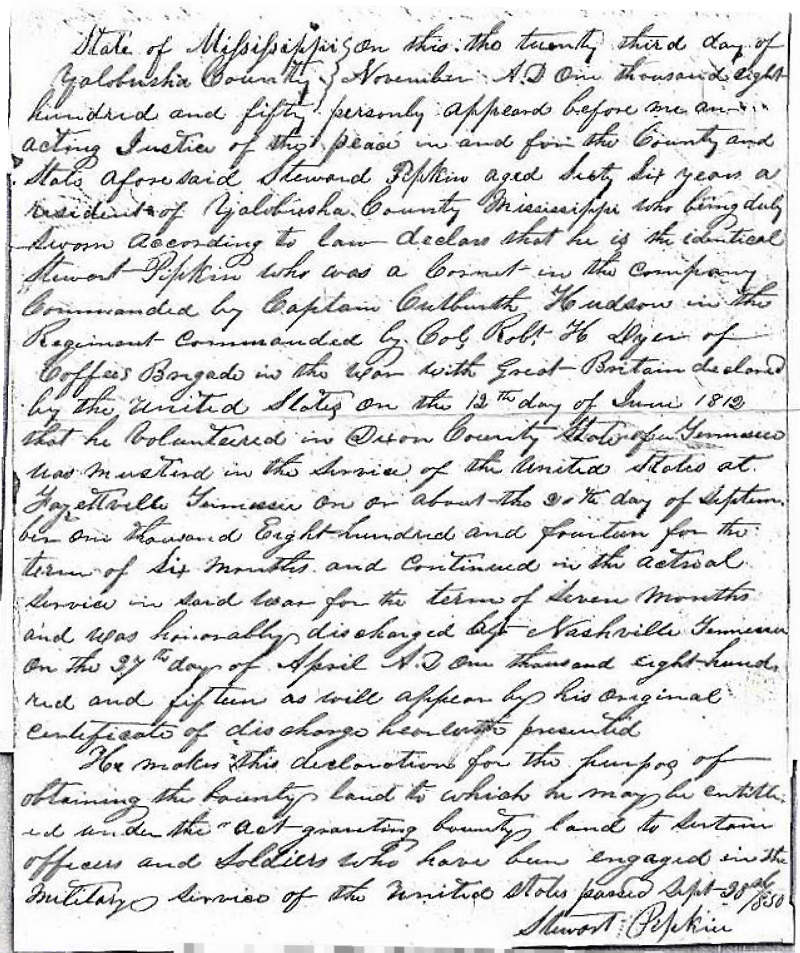 State of Mississippi } On this the twenty third day of
Yalobusha County } November A.D One thousand eight
hundred and fifty personly appeard before me an
acting Justice of the peace in and for the County and
State aforesaid Steward Pipkin aged Sixty Six years a
resident of Yalobusha County Mississippi who being duly
sworn according to law declars that he is the identical
Stewart Pipkin who was a Cornet in the company
Commanded by Captain Cutburth Hudson in the
Regiment commanded by Col Robt H Dyer of
Coffees Brigade in the War with Great Britain declared
by the United States on the 12th day of June 1812
that he Volunteered in Dixon County State of Tennessee
was musterd in the Service of the United States at
Fayettville Tennessee on or about the day of Septem
ber one thousand Eight hundred and fourteen for the
term of Six Months and continued in the actual
Service in said War for the term of Seven Months
and was honorably discharged at Nashville Tennessee
on the 27th day of April A.D One thousand eight hund
red and fifteen as will appear by his original
certificate of discharge hearwith presented
He makes this declaration for the purpos of
obtaining the bounty land to which he may be entitl
ed under the "act granting bounty land to Sertain
officers and Soldiers who have been engaged in the
Military Service of the United States passed Sept 28th 1850
Stewart Pipkin